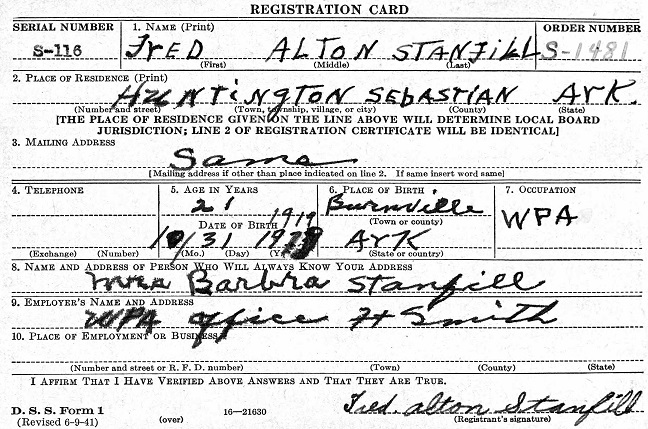 REGISTRATION CARD
SERIAL NUMBER 1. NAME (Print) ORDER NUMBER
S-116 FRED ALTON STANFILL S-1481
(First) (Middle) (Last)
2. PLACE OF RESIDENCE (Print)
HUNTINGTON SEBASTIAN ARK.
(Number and street) (Town, township, village, or city) (County) (State)
[THE PLACE OF RESIDENCE GIVEN ON THE LINE ABOVE WILL DETERMINE LOCAL BOARD
JURISDICTION; LINE 2 OF REGISTRATION CERTIFICATE WILL BE IDENTICAL]
3. MAILING ADDRESS
Same
[Mailing address if other than place indicated on line 2. If same insert word same]
4. TELEPHONE 5. AGE IN YEARS 6. PLACE OF BIRTH 7. OCCUPATION
21 Burnville WPA
DATE OF BIRTH 1919 (Town or county)
10/31 ARK
(Exchange) (Number) (Mo.) (Day) (Yr.) (State or country)
8. NAME AND ADDRESS OF PERSON WHO WILL ALWAYS KNOW YOUR ADDRESS
Mrs Barbra Stanfill
9. EMPLOYER'S NAME AND ADDRESS
WPA office Ft Smith
10. PLACE OF EMPLOYMENT OR BUSINESS
(Number and street or R. F. D. number) (Town) (County) (State)
I AFFIRM THAT I HAVE VERIFIED ABOVE ANSWERS AND THAT THEY ARE TRUE.
D. S. S. Form 1 Fred. alton Stanfill
(Revised 6-9-41) (over) 16—21630 (Registrant's signature)